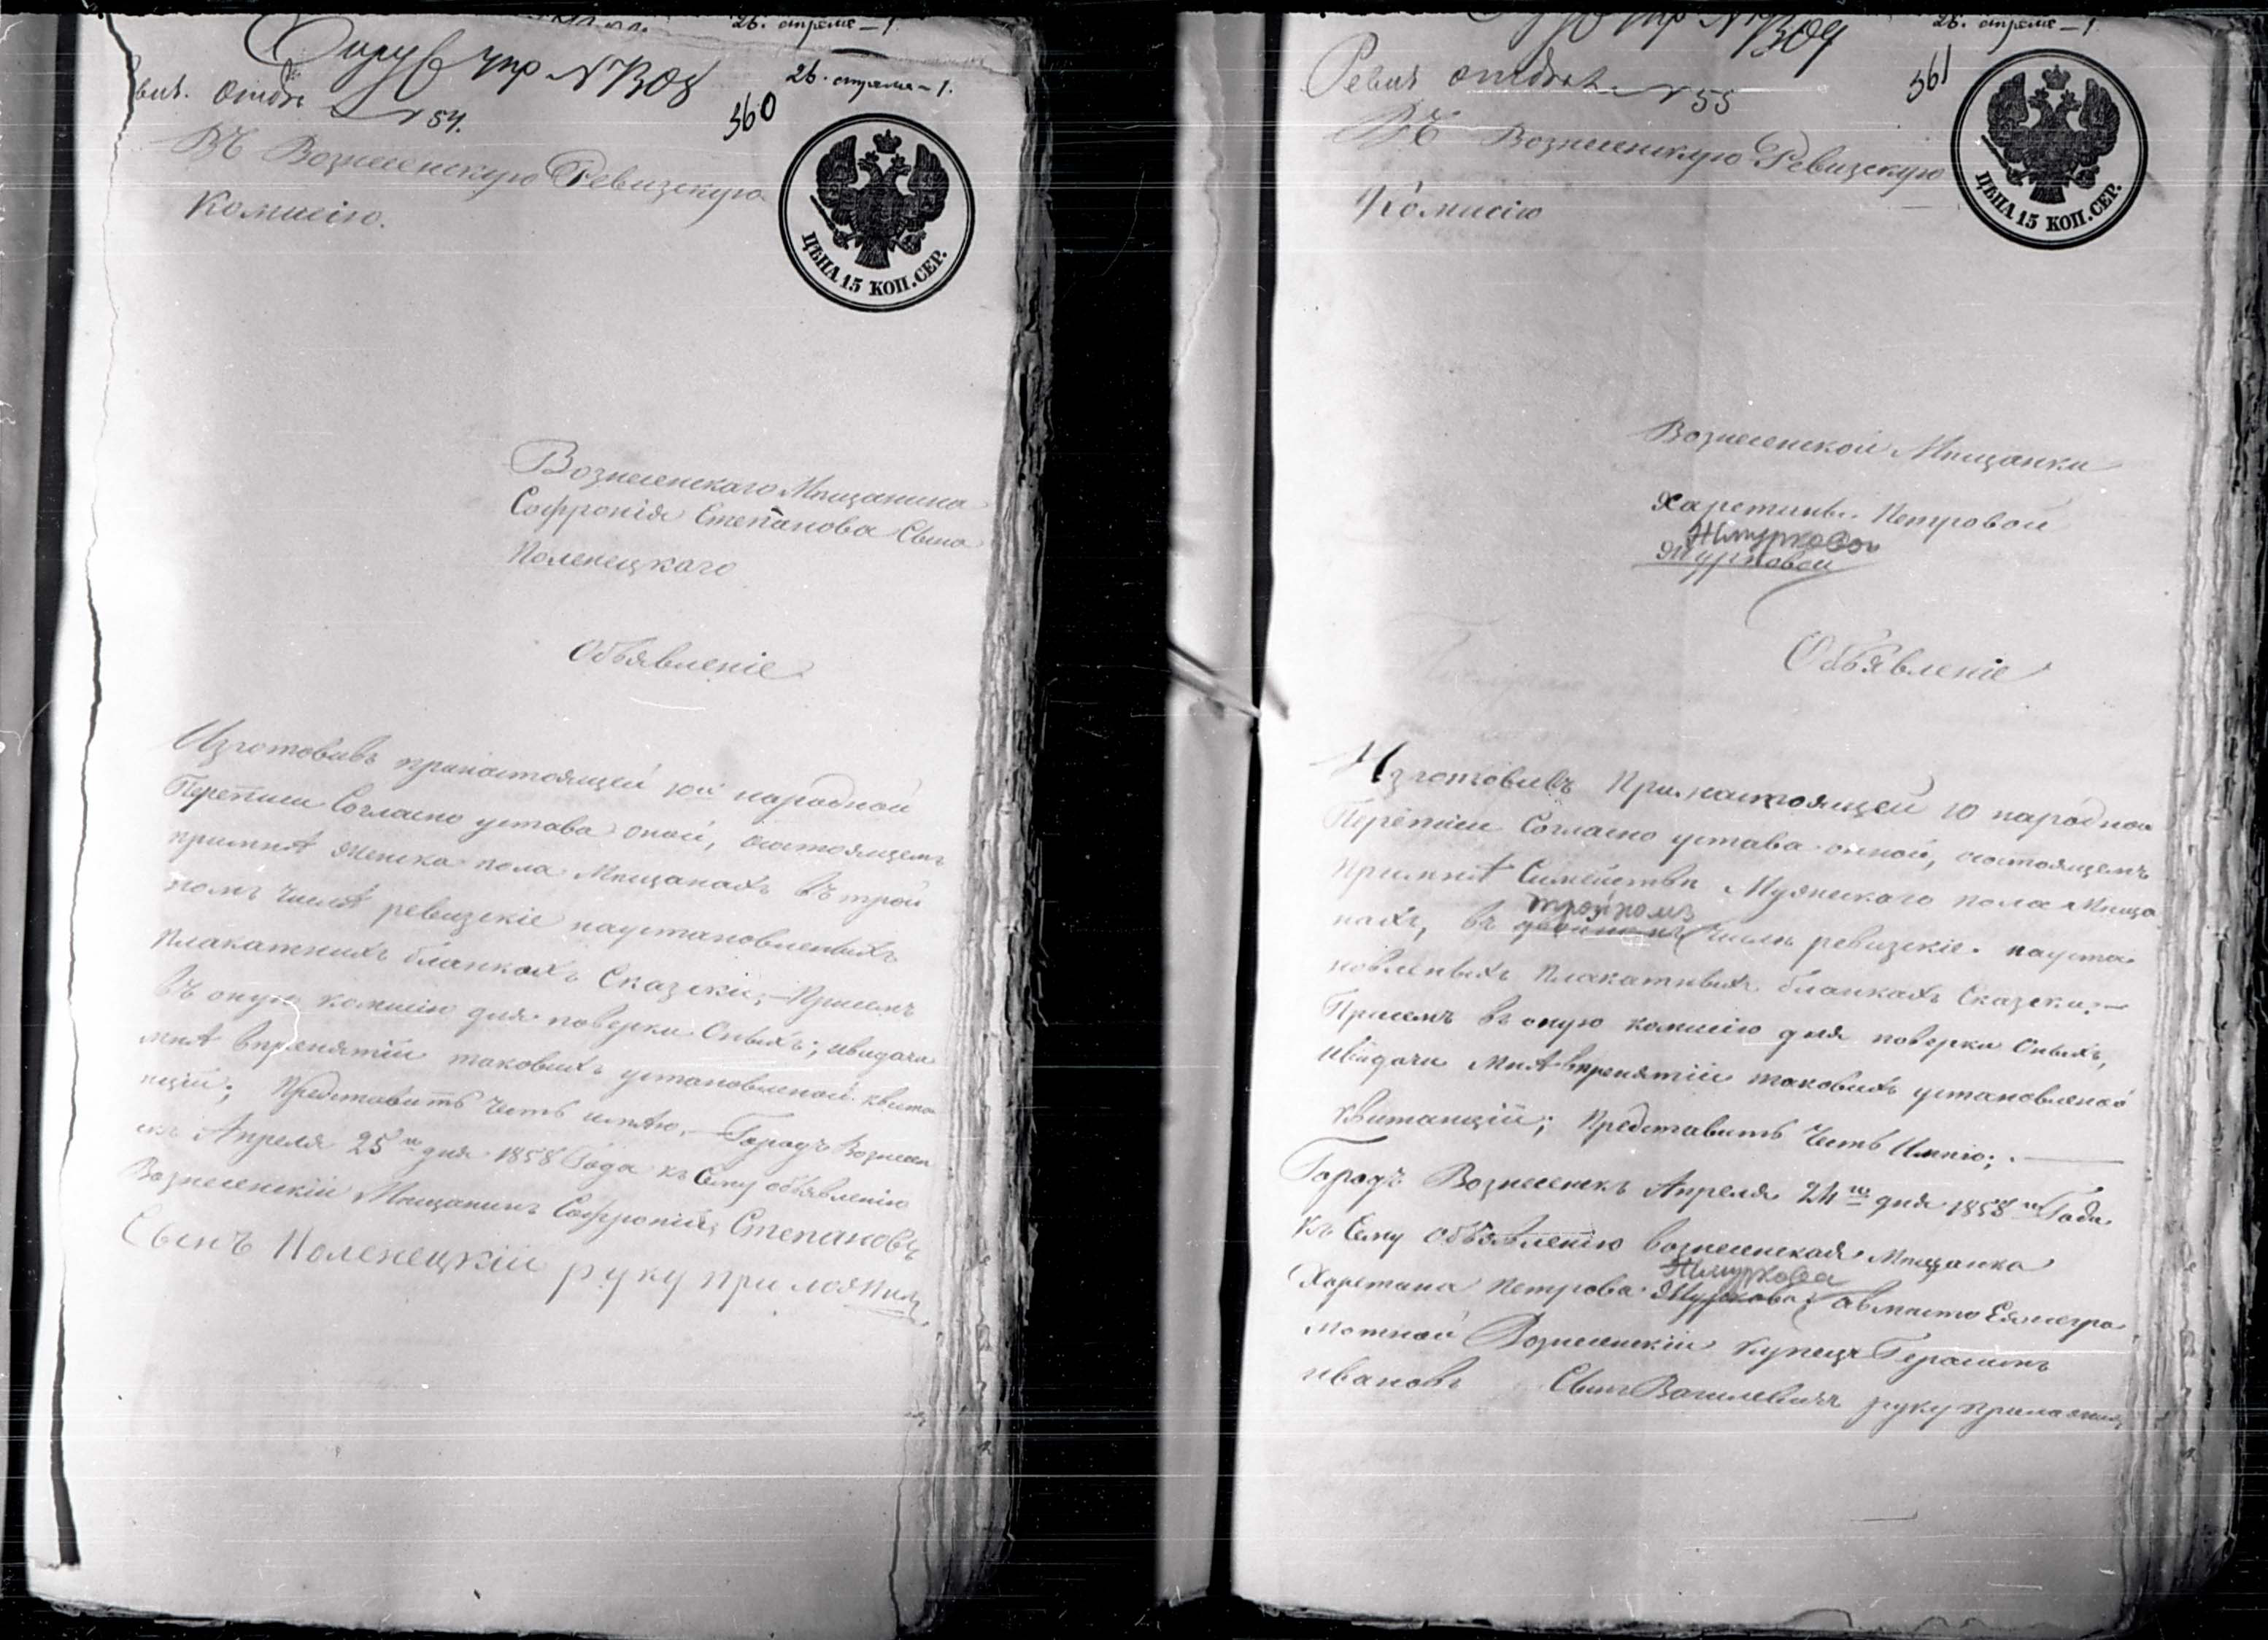 26. апреля – 1.
26. апреля – 1.
№ 1308
360
отдел № 54.
Въ Вознесенскую Ревизскую
Комисію.
ЦѢНА 15 КОП. СЕР.
Вознесенскаго Мѣщанина
Софронія Степанова Сына
Поленецкаго
Объявленіе
Изготовивъ принастоящей 10й народной
Переписи Согласно устава оной, осостоящемъ
примнѣ женска пола Мѣщанахъ въ трой
номъ числѣ ревизскіе наустановленныхъ
плакатнихъ бланкахъ Сказски; – Присемъ
въ оную комисію для поверки Оныхъ; ивидачи
мнѣ впренятіи таковыхъ установленой квита
нціи; Представить Честь имѣю. – Городъ Вознесен
скъ Апреля 25го дня 1858 Года къ Сему объявленію
Вознесенскій Мѣщанинъ Софроній Степановъ
Сынъ Поленецкій руку приложилъ
№ 1309
26. апреля – 1.
361
Ревиз отдел № 55
Въ Вознесенскую Ревизскую
Комисію
ЦѢНА 15 КОП. СЕР.
Вознесенской Мѣщанки
Харетины Петровой
Жмурковой
Журковой
Объявленіе
Изготовивъ Принастоящей 10 народной
Переписи Согласно устава оной, осостоящемъ
Примнѣ Симействѣ Мужескаго пола Мѣща
нахъ, въ тройномъ числѣ ревизскіе науста
новленныхъ плакатныхъ бланкахъ Сказски; –
Присемъ въ оную комисію для поверки Оныхъ,
ивидачи Мнѣ впренятіи таковыхъ установленой
квитанціи; Представить Честь Имѣю; –
Городъ Вознесенскъ Апреля 24го дня 1858го Года
къ Сему Объявленію вознесенская Мѣщанка
Жмуркова
Харетина Петрова Журкова, авместо Ея негра
мотной Вознесенскій купецъ Герасимъ
Ивановъ Сынъ Василевичъ руку приложилъ